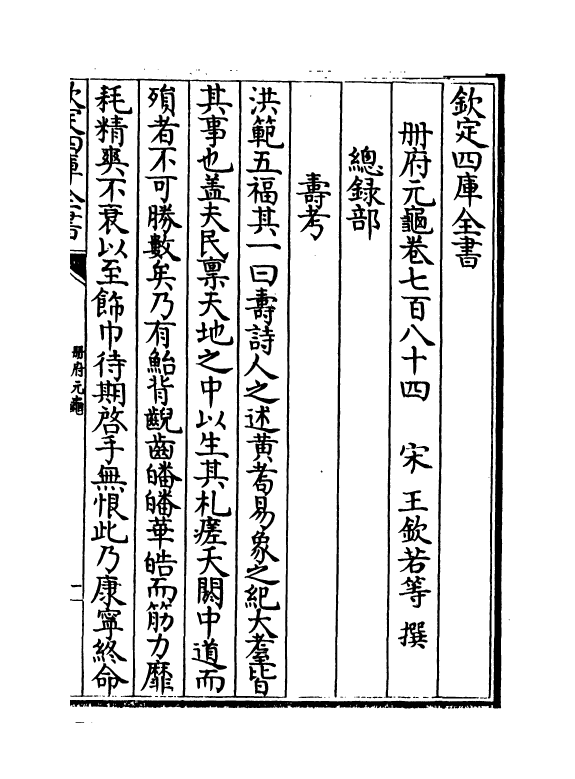 欽定四庫全書
冊府元龜卷七百八十四　宋　王欽若等　撰
總錄部
壽考
洪範五福其一曰壽詩人之述黄耉易象之紀大耋皆
其事也蓋夫民禀天地之中以生其札瘥夭閼中道而
殞者不可勝數矣乃有鮐背齯齒皤皤華皓而筋力靡
耗精爽不衰以至飾巾待期啓手無恨此乃康寧終命
欽定四庫全書
冊府元龜
一